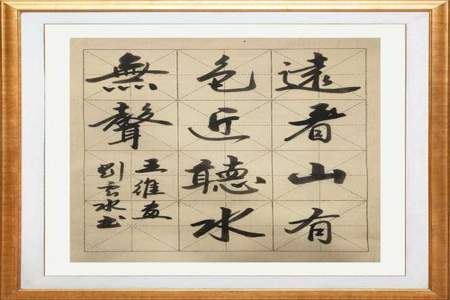 遠看山有
色近聽水
無聲
王維畫
劉雲水書